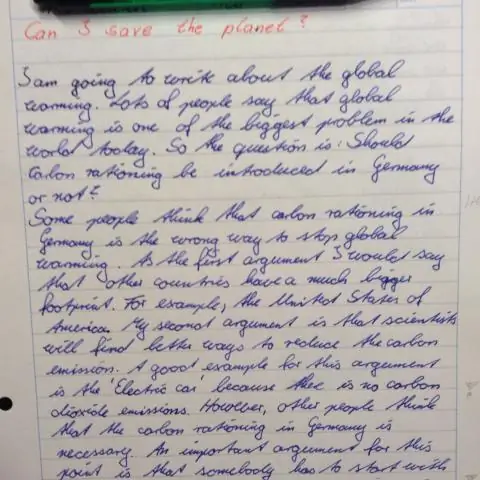 Can I save the planet?
I am going to write about the global
warming. Lots of people say that global
warming is one of the biggest problem in the
world today. So the question is: Should
carbon rationing be introduced in Germany
or not?
Some people think that carbon rationing in
Germany is the wrong way to stop global
warming. As the first argument I would say
that other countries have a much bigger
footprint. For example, the United States of
America. My second argument is that scientists
will find better ways to reduce the carbon
emission. A good example for this argument
is the 'Electric car' because there is no carbon
dioxide emissions. However, other people think
that the carbon rationing in Germany is
necessary. An important argument for this
point is that somebody has to start with